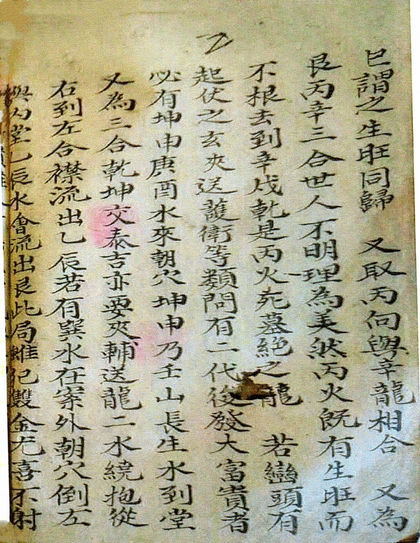 巳謂之生旺同歸 又取丙向與辛龍相合 又為
艮丙辛三合世人不明理為美然丙火旣有生旺而
不根去到辛戌乾是丙火死墓絶之龍 若巒頭有
起伏之玄夾送護衛等類間有二代後發大富貴者
必有坤申庚酉水來朝穴坤申乃壬山長生水到堂
又為三合乾坤交泰吉亦要夾輔送龍二水繞抱從
右到左合襟流出乙辰若有巽水在案外朝穴倒左
與內堂乙辰水會流出艮此局雖犯毀金尤喜不射